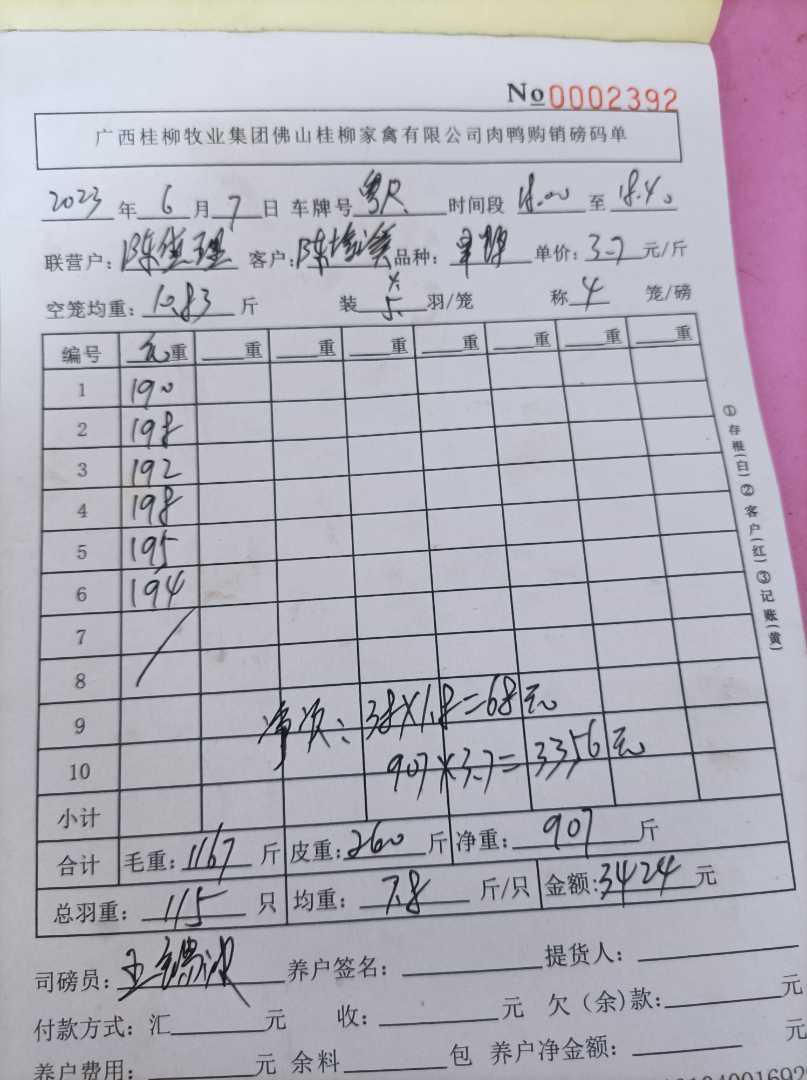 No 0002392
广西桂柳牧业集团佛山桂柳家禽有限公司肉鸭购销磅码单
2023 年 6 月 7 日 车牌号 粤R 时间段 18.00 至 18.40
联营户: 陈 客户: 陈 品种: 单价: 3.7 元/斤
空笼均重: 10.83 斤 装 5 羽/笼 称 4 笼/磅
编号 毛重 重 重 重 重 重 重 重
1 190
2 198
3 192
4 198
5 195
6 194
7
8
9 38×1.8=68元
10 907×3.7=3356元
小计
合计 毛重: 1167 斤 皮重: 260 斤 净重: 907 斤
总羽重: 115 只 均重: 7.8 斤/只 金额: 3424 元
司磅员: 王 养户签名: 提货人:
付款方式: 汇 元 收: 元 欠(余)款: 元
养户费用: 元 余料 包 养户净金额: 元
①存根(白)②客户(红)③记账(黄)